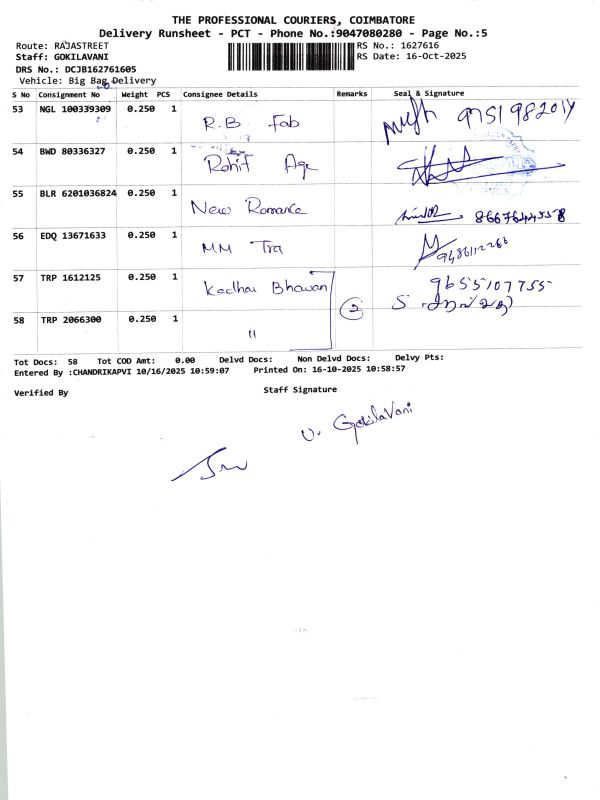 THE PROFESSIONAL COURIERS, COIMBATORE
Delivery Runsheet - PCT - Phone No.:9047080280 - Page No.:5
Route: RAJASTREET
RS No.: 1627616
Staff: GOKILAVANI
RS Date: 16-Oct-2025
DRS No.: DCJB162761605
Vehicle: Big Bag Delivery
S No Consignment No Weight PCS Consignee Details Remarks Seal & Signature
53 NGL 100339309 0.250 1 R.B Fab 9751982014
54 BWD 80336327 0.250 1 Rohit Age
55 BLR 6201036824 0.250 1 New Romance 8667644558
56 EDQ 13671633 0.250 1 MM Tra
57 TRP 1612125 0.250 1 Kadhai Bhavan 2 9655107755
58 TRP 2066300 0.250 1 "
Tot Docs: 58 Tot COD Amt: 0.00 Delvd Docs: Non Delvd Docs: Delvy Pts:
Entered By :CHANDRIKAPVI 10/16/2025 10:59:07 Printed On: 16-10-2025 10:58:57
Verified By Staff Signature
U. GokilaVani